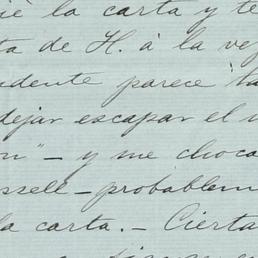 la carta y te
ta de H. á la ve
dente parece ha
dejar escapar el
n" — y me choca
ssell — probablem
la carta. — Cierta